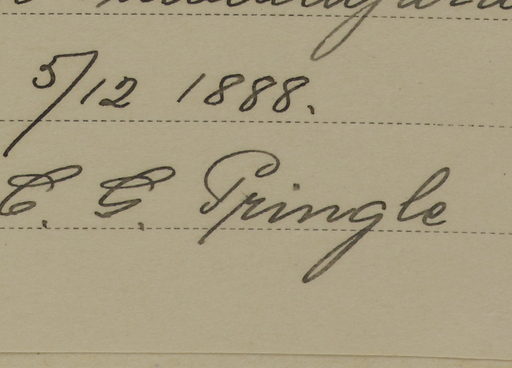 5/12 1888.
C. G. Pringle